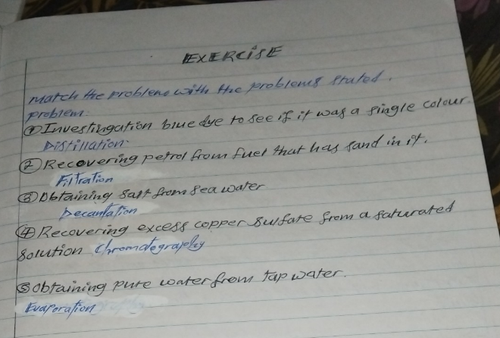 EXERCISE
match the problems with the problems stated.
problem:
① Investingation blue dye to see if it was a single colour.
Distillation:
② Recovering petrol from fuel that has sand in it.
Filtration
③ Obtaining salt from sea water
Decantation
④ Recovering excess copper sulfate from a saturated
solution Chromatography
⑤ Obtaining pure water from tap water.
Evaporation